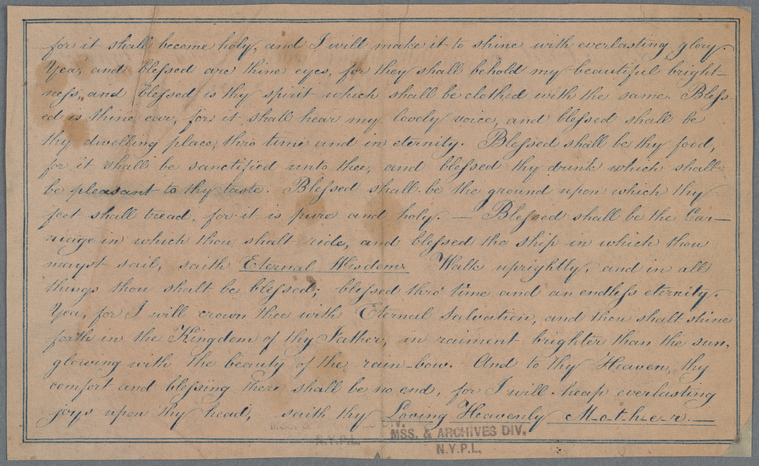 for it shall become holy, and I will make it to shine with everlasting glory.
Yea, and blessed are thine eyes, for they shall behold my beautiful bright-
ness, and blessed is thy spirit which shall be clothed with the same. Bless-
ed is thine ear, for it shall hear my lovely voice, and blessed shall be
thy dwelling place, thro time and in eternity. Blessed shall be thy food,
for it shall be sanctified unto thee, and blessed thy drink which shall
be pleasant to thy taste. Blessed shall be the ground upon which thy
feet shall tread, for it is pure and holy. — Blessed shall be the Car—
riage in which thou shalt ride, and blessed the ship in which thou
mayst sail, saith Eternal Wisdom. Walk uprightly, and in all
things thou shalt be blessed; blessed thro' time and an endless eternity.
Yea, for I will crown thee with Eternal Salvation, and thou shalt shine
forth in the Kingdom of thy Father, in raiment brighter than the sun,
glowing with the beauty of the rain-bow. And to thy Heaven, thy
comfort and blessing there shall be no end, for I will heap everlasting
joys upon thy head, saith thy Loving Heavenly M-o-t-h-e-r.—
MSS. & ARCHIVES DIV.
N.Y.P.L.
N.Y.P.L.